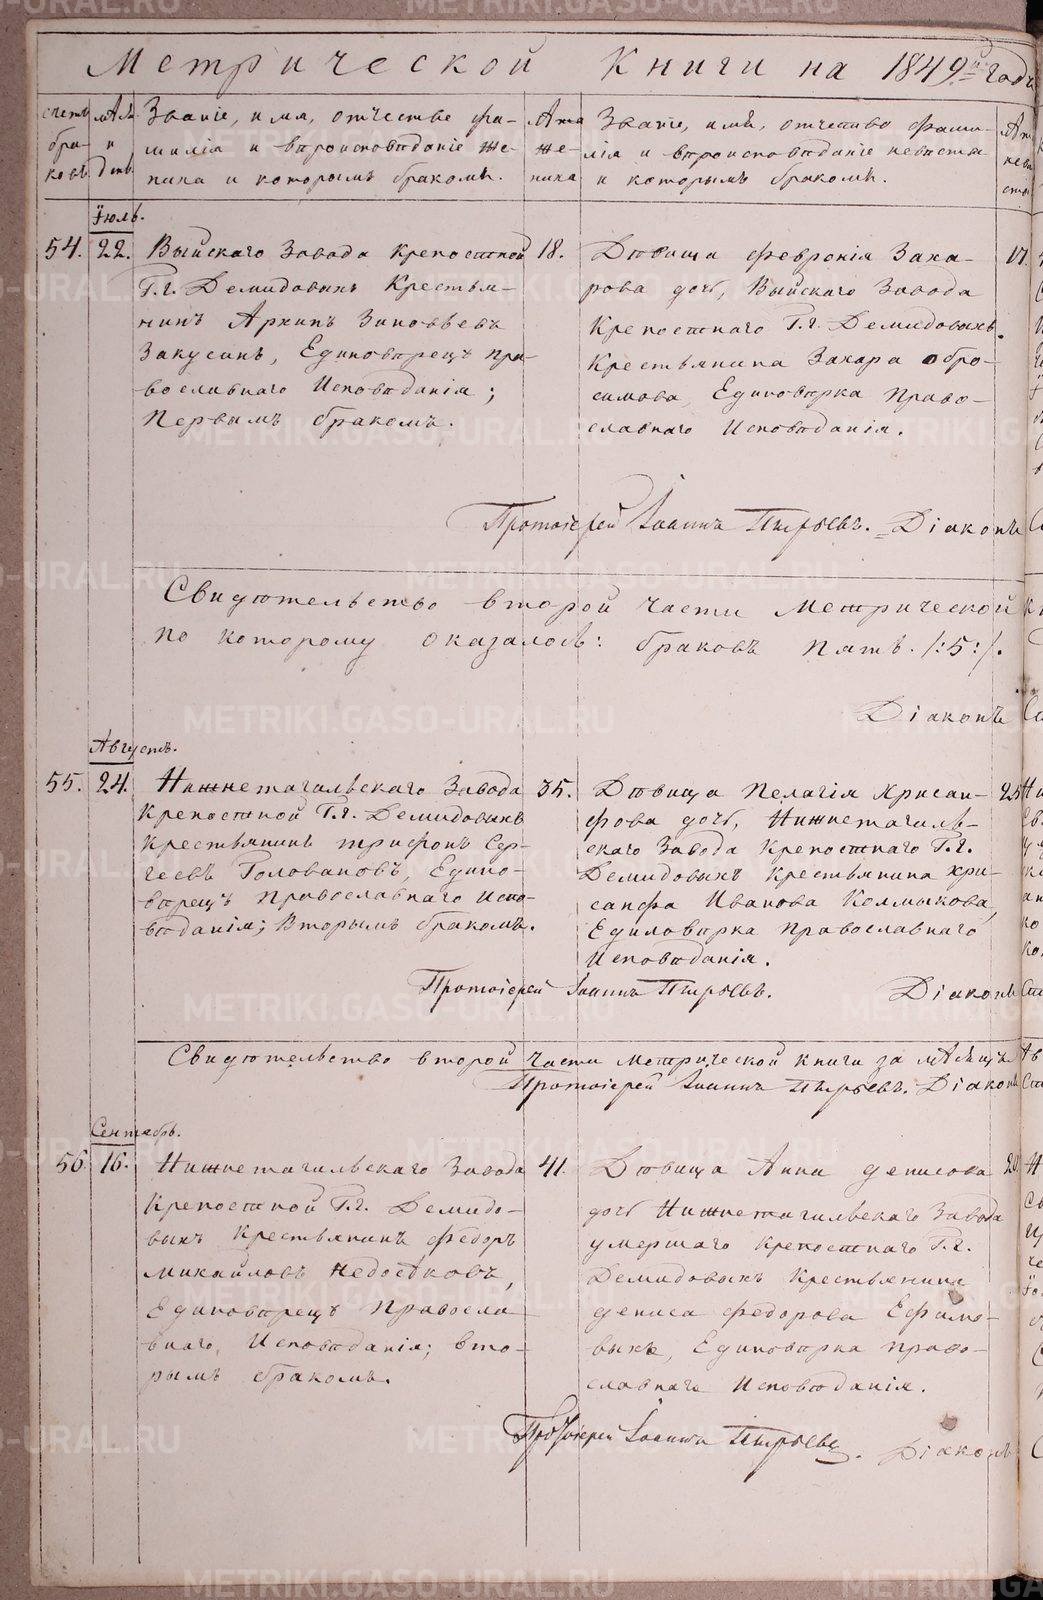 Метрической Книги на 1849й годъ
счетъ бра- ковъ.
мѣс. и день.
Званіе, имя, отчество фа-
милія и вѣроисповѣданіе же-
ниха и которымъ бракомъ.
Лѣта же- ниха
Званіе, имя, отчество фами-
лія и вѣроисповѣданіе невѣсты
и которымъ бракомъ.
Лѣта невѣ сты
Іюль.
54. 22.
Выйскаго Завода Крепостной
Г.г. Демидовыхъ Крестья-
нинъ Архипъ Зиновьевъ
Закусинъ, Единовѣрецъ пра-
вославнаго Исповѣданія;
Первымъ бракомъ.
18.
Дѣвица Февронія Заха-
рова дочь, Выйскаго Завода
Крепостнаго Г.г. Демидовыхъ
Крестьянина Захара обро-
симова, Единовѣрка Право-
славнаго Исповѣданія.
17.
Протоіерей Іоаннъ Пырьевъ. Діаконъ
Свидѣтельство второй части Метрической
по которому оказалось: браковъ пять. /:5:/.
Діаконъ
Августъ.
55. 24.
Нижнетагильскаго Завода
Крепостной Г.г. Демидовыхъ
Крестьянинъ трифонъ Сер-
геевъ Головановъ, Едино-
вѣрецъ Православнаго Испо-
вѣданія; Вторымъ бракомъ.
35.
Дѣвица Пелагія Хрисан-
фова дочь, Нижнетагиль-
скаго Завода Крепостнаго Г.г.
Демидовыхъ Крестьянина хри-
санфа Иванова Колмыкова,
Единовѣрка православнаго
Исповѣданія.
25
Протоіерей Іоаннъ Пырьевъ. Діаконъ
Свидѣтельство второй части метрической книги за мѣсяцъ
Протоіерей Іоаннъ Пырьевъ. Діаконъ
Сентябрь.
56. 16.
Нижнетагильскаго Завода
Крепостной Г.г. Демидо-
выхъ Крестьянинъ федоръ
михайловъ Недосѣковъ,
Единовѣрецъ Правосла
внаго, Исповѣданія; вто-
рымъ бракомъ.
41.
Дѣвица Анна денисова
дочь Нижнетагильскаго Завода
умершаго Крепостнаго Г.г.
Демидовыхъ Крестьянина
дениса федорова Ефимо-
выхъ, Единовѣрка право-
славнаго Исповѣданія.
20.
Протоіерей Іоаннъ Пырьевъ. Діаконъ
METRIKI.GASO-URAL.RU